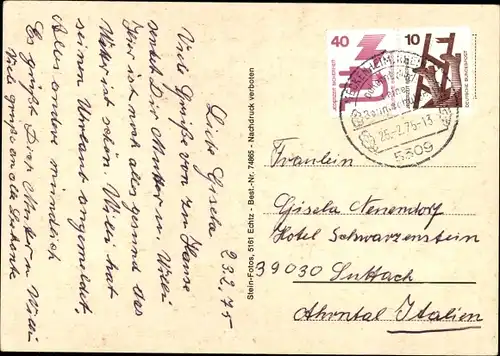 23.2.75
Liebe Gisela
Viele Grüße von zu Hause
sendet Dir Mutter u. Willi
hier ist noch alles gesund das
Wetter ist schön. Willi hat
seinen Urlaub angemeldet,
Alles andere mündlich
Es grüßt Dich Mutter u Willi
Viele Grüße an alle
Stein-Fotos, 5161 Echtz - Best.-Nr. 74865 - Nachdruck verboten
40
10
DEUTSCHE BUNDESPOST
25.-2.75-13
5309
Fräulein
Gisela Nenendorf
Hotel Schwarzenstein
39030 Luttach
Ahrntal Italien